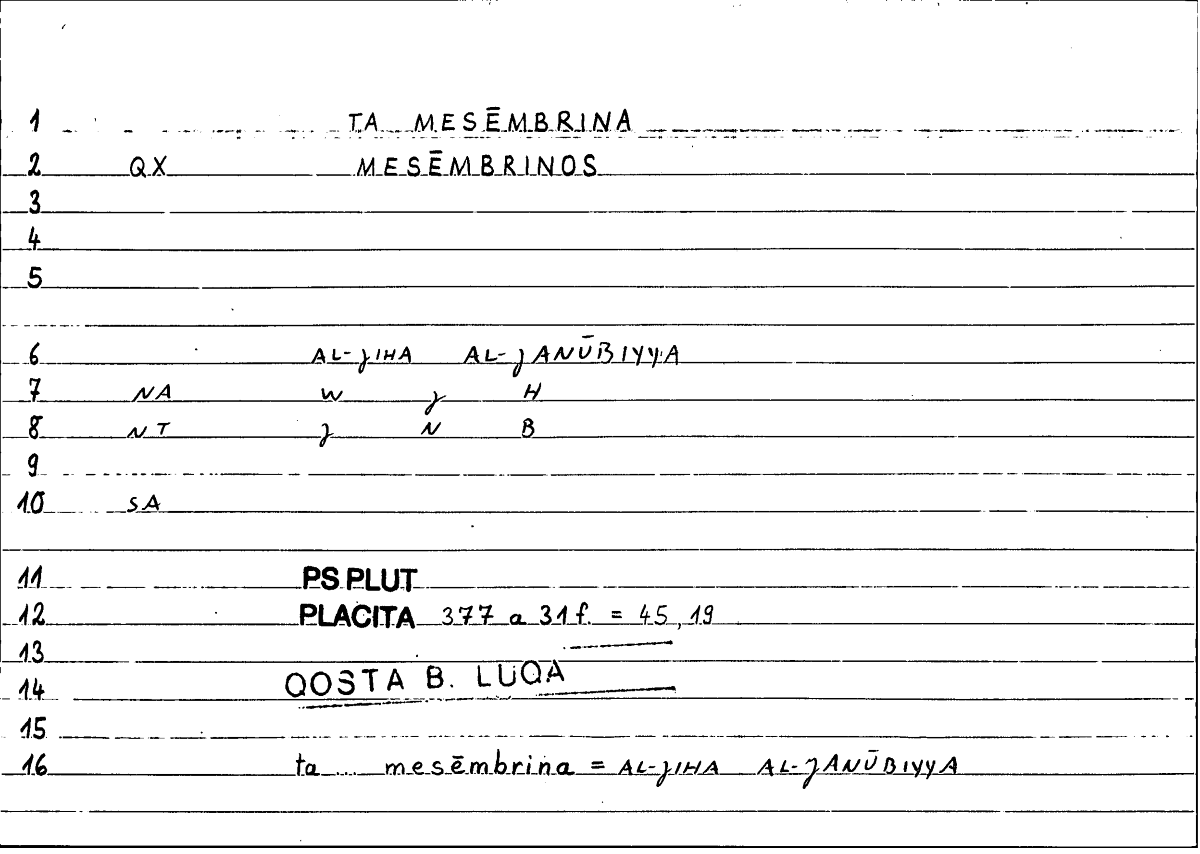 1 TA MESĒMBRINA
2 QX MESĒMBRINOS
3
4
5
6 AL-JIHA AL-JANŪBIYYA
7 NA W J H
8 NT J N B
9
10 SA
11 PS.PLUT
12 PLACITA 377 a 31 f. = 45,19
13
14 QOSTA B. LUQA
15
16 ta ... mesēmbrina = AL-JIHA AL-JANŪBIYYA